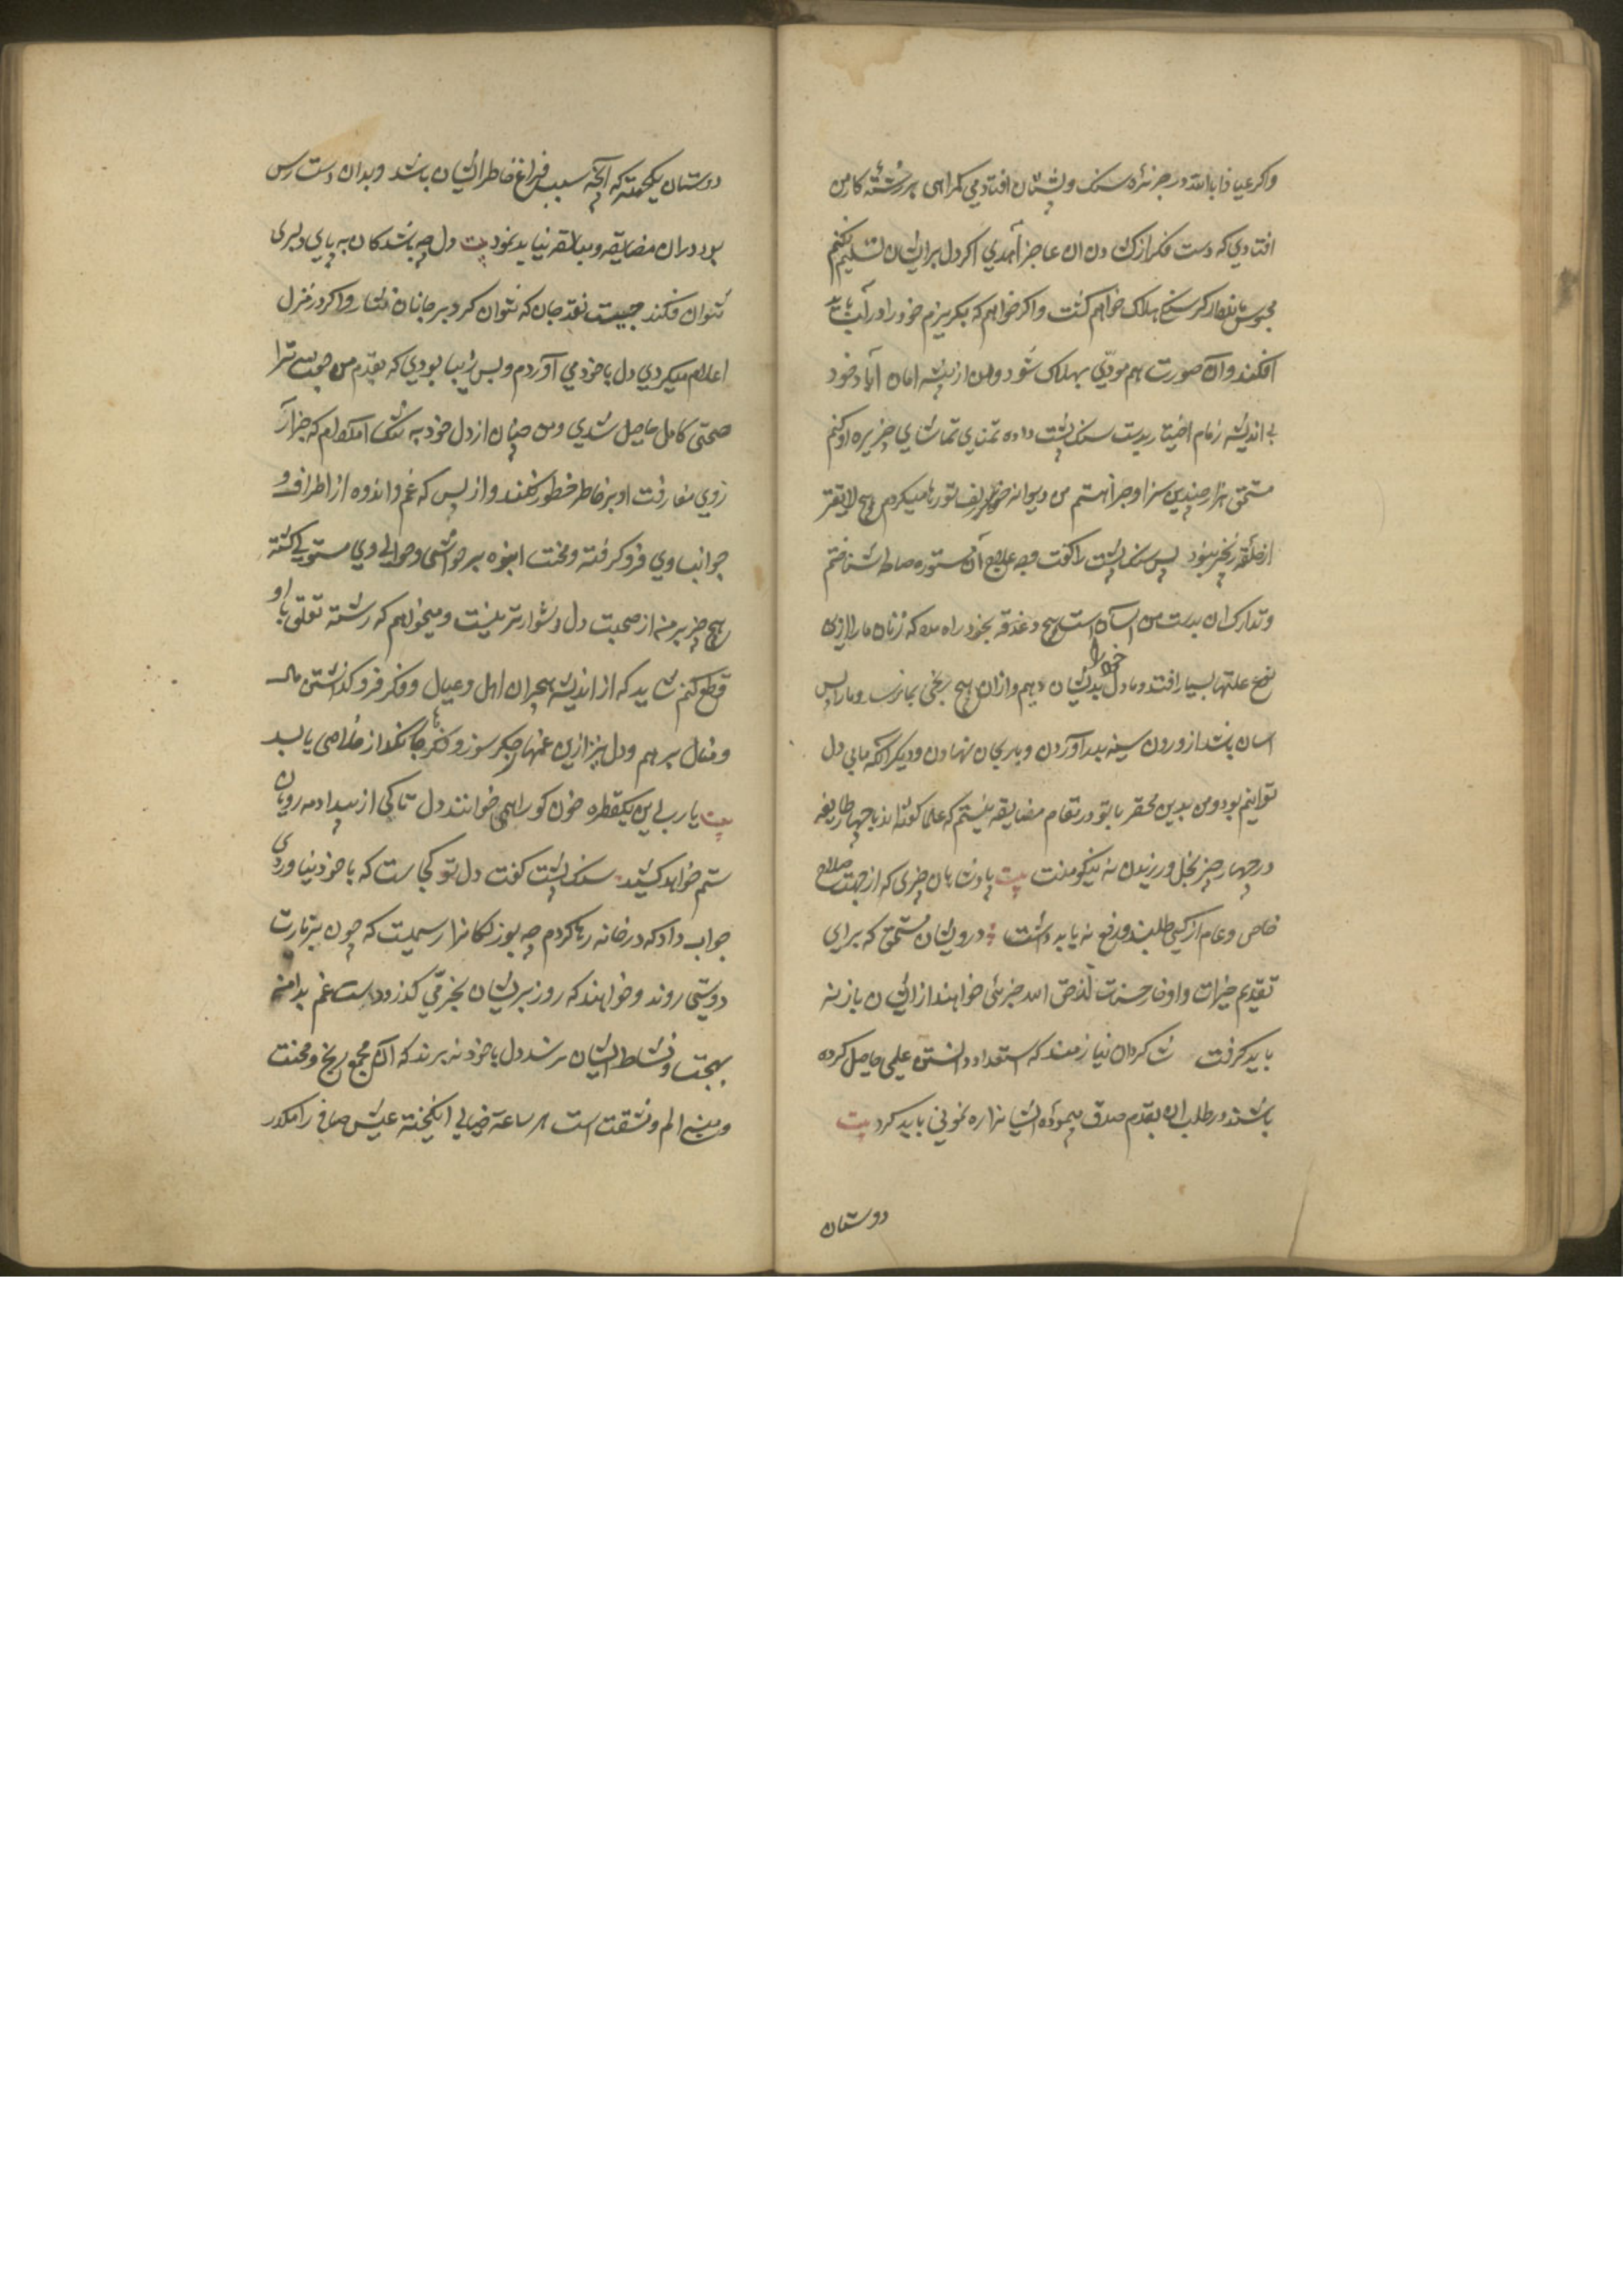 واکر عیاذا بالله در جزیره سنک پشتان افتادمی کمراهی بر رشته کار من
افتادی که دست فکر از کشادن ان عاجز آمدی اکر دل بر ایشان تسلیم نکنم
محبوس مانم و از کرسنکی هلاک خواهم کشت واکر خواهم که بکریزم خود را در آب باید
افکند و آن صورت هم مودّی بهلاک شود و من از بیشه امان آباد خود
بی اندیشه زمام اختیار بدست سنک پشت داده تمنای تماشای جزیره او کنم
مستحق هزار چندین سزا و جزا هستم من دیوانه چو زلف تو رها میکردم هیچ لایقتر
از حلقه زنجیر نبود پس سنک پشت را کفت وجه علاج آن مستوره صالحه شناختم
و تدارک ان بدست من آسان است هیچ دغدغه بخود راه مده که زنان ما را ازین
نوع علتها بسیار افتد و ما دل خود را بدیشان دهیم و از ان هیچ رنجی بما نرسد و ما را بس
اسان باشد از درون سینه بدر آوردن و باز بجای نهادن و دیکر آنکه ما بی دل
توانیم بود و من بدین محقر با تو در مقام مضایقه نیستم که علما کفته اند با چهار طایفه
در چهار چیز بخل ورزیدن نه نیکوست بیت پادشاهان چیزی که از جهت صلاح
خاص و عام از کسی طلبند دریغ نباید داشت درویشان مستحق که برای
تقدیم خیرات و ادخار حسنات لله چیزی خواهند از ایشان باز نه
باید کرفت شاکردان نیازمند که استعداد دانستن علمی حاصل کرده
باشند و در طلب ان بقدم صدق پیموده ایشانرا ره نمونی باید کرد بیت
دوستان
دوستان یکجهته که آنچه سبب فراغ خاطر ایشان باشد و بدان دست رس
بود در ان مضایقه و مبالغه نباید نمود بیت دل چه باشد کان به پای دلبری
نتوان فکند چیست نقد جان که نتوان کرد بر جانان نثار و اکر در منزل
اعلام میکردی دل با خود می آوردم و بس زیبا بودی که بقدم من جفت ترا
صحتی کامل حاصل شدی و من چنان از دل خود به تنک آمده ام که جز آر
زوی مفارقت او بر خاطر خطور نکند و از بس که غم و اندوه از اطراف و
جوانب وی فرو کرفته و محنت انبوه بر حواشی و حوالی وی مستولی کشته
هیچ چیز بر من از صحبت دل دشوارتر نیست و میخواهم که رشته تعلق با او
قطع کنم شاید که از اندیشه هجران اهل و عیال و فکر فرو کذاشتن مال
و منال برهم و دل نیز ازین غمنهای جکر سوز و فکرهای جانکداز خلاصی یابد
بیت یا رب این یکقطره خون کو را همی خوانند دل تا کی از بیداد مه رویان
ستم خواهد کشید سنک پشت کفت دل تو کجاست که با خود نیاوردی
جواب داد که در خانه رها کردم چه بوزنکانرا رسمیست که چون بزیارت
دوستی روند و خواهند که روز بر ایشان بخرمی کذرد و دست غم بدامن
بهجت و نشاط ایشان نرسد دل با خود نه برند که آن مجمع رنج و محنت
و منبع الم و مشقت است هر ساعة خیالی انکیخته عیش صافی را مکدر